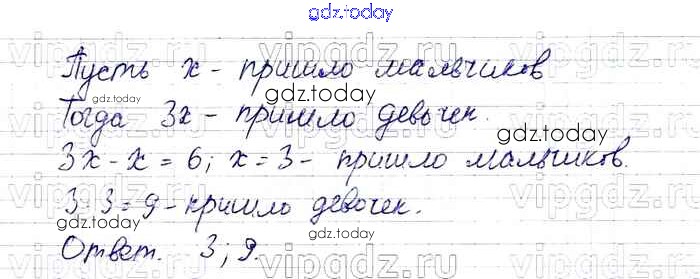 gdz.today
Пусть x - пришло мальчиков
gdz.today
Тогда 3x - пришло девочек.
gdz.today
gdz.today
3x - x = 6; x = 3 - пришло мальчиков.
3·3 = 9 - пришло девочек.
gdz.today
gdz.today
Ответ. 3; 9.
gdz.today